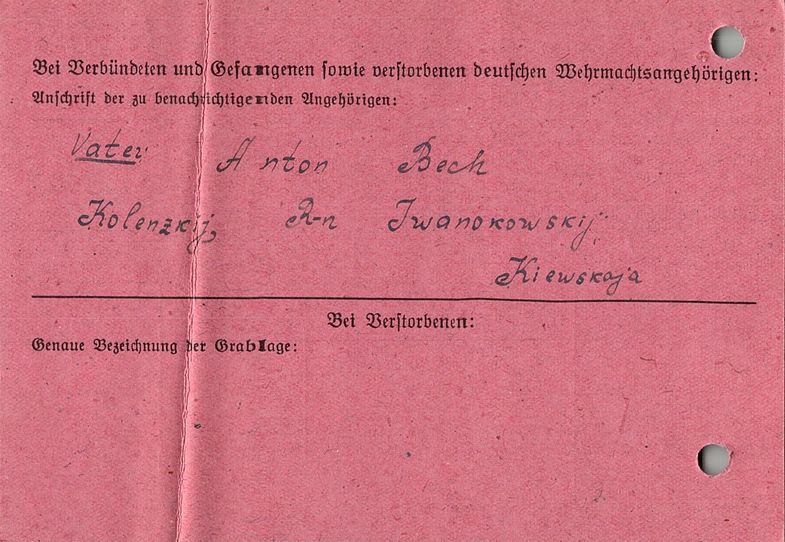 Bei Verbündeten und Gefangenen sowie verstorbenen deutschen Wehrmachtsangehörigen:
Anschrift der zu benachrichtigenden Angehörigen:
Vater Anton Bech
Kolenzkij R-n Iwanokowskij
Kiewskaja
Bei Verstorbenen:
Genaue Bezeichnung der Grablage: